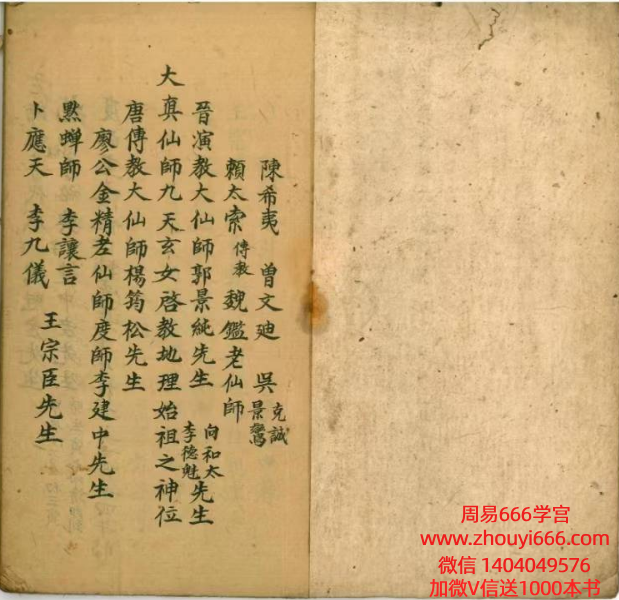 陳希夷 曾文辿 吳克誠景鸞
賴太索傳教 魏鑑老仙師
晉演教大仙師郭景純先生 向和太李德魁先生
大真仙師九天玄女啓教地理始祖之神位
唐傳教大仙師楊筠松先生
廖公金精老仙師度師李建中先生
黙蟬師 李讓言
卜應天 李九儀
王宗臣先生
周易666学宫
www.zhouyi666.com
微信 1404049576
加微V信送1000本书